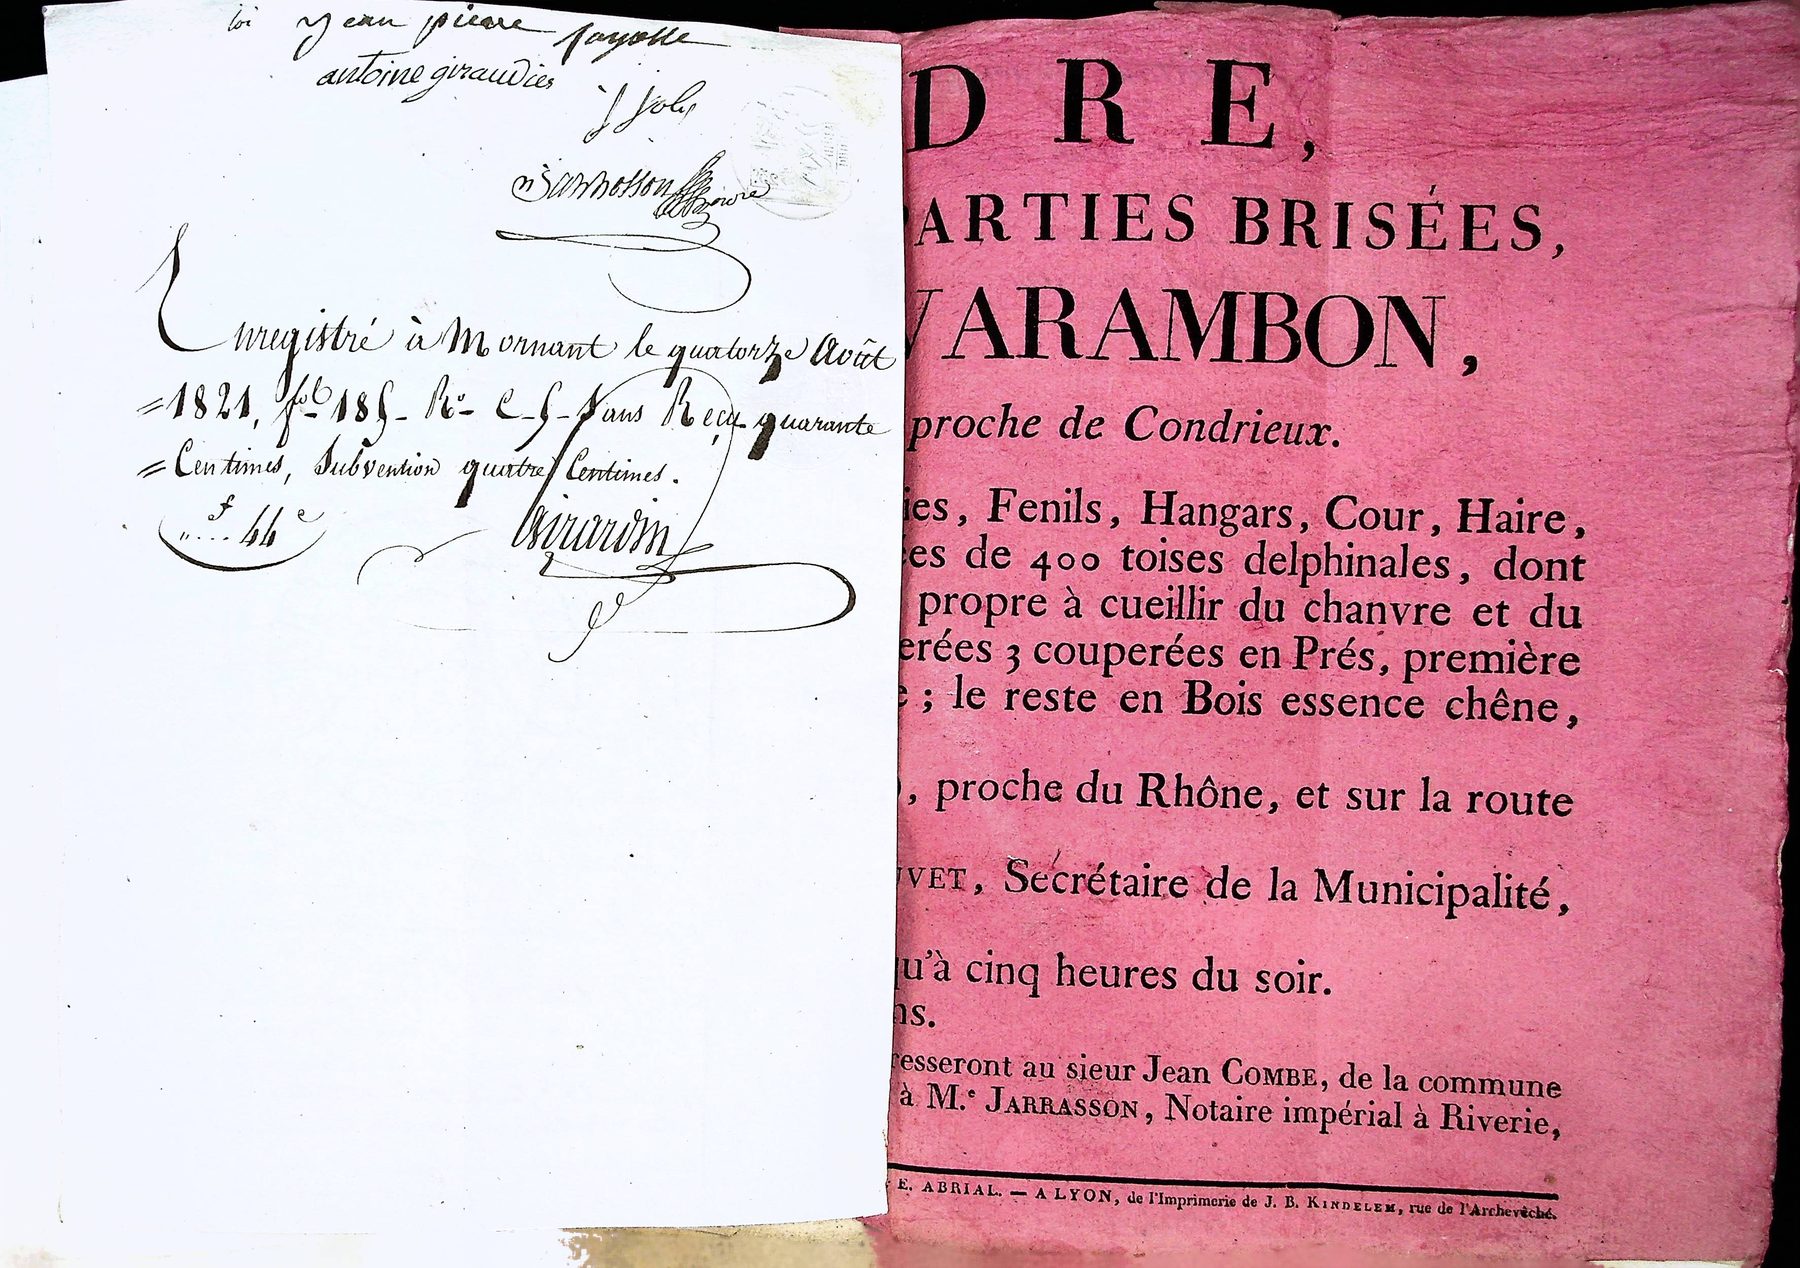 toi Jean pierre fayolle
antoine giraudier
J Joly
Enregistré à Mornant le quatorze Août
=1821, fol 185 Ro C 5 Sans Reçu quarante
=Centimes, Subvention quatre Centimes.
f 44 c
Girardin
DRE,
PARTIES BRISÉES,
VARAMBON,
proche de Condrieux.
ies, Fenils, Hangars, Cour, Haire,
ées de 400 toises delphinales, dont
propre à cueillir du chanvre et du
erées 3 couperées en Prés, première
e ; le reste en Bois essence chêne,
, proche du Rhône, et sur la route
UVET, Secrétaire de la Municipalité,
qu'à cinq heures du soir.
ns.
resseront au sieur Jean COMBE, de la commune
à M.e JARRASSON, Notaire impérial à Riverie,
E. ABRIAL. — A LYON, de l'Imprimerie de J. B. KINDELEM, rue de l'Archevêché.